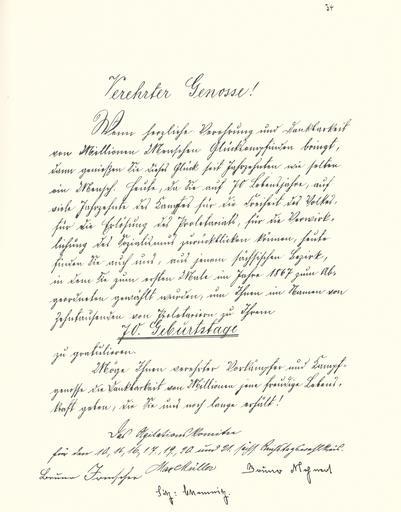 34
Verehrter Genosse!
Wenn herzliche Verehrung und Dankbarkeit
von Millionen Menschen Glücksempfinden bringt,
dann genießen Sie dieses Glück seit Jahrzehnten wie selten
ein Mensch. Heute, da Sie auf 70 Lebensjahre, auf
viele Jahrzehnte des Kampfes für die Freiheit des Volkes,
für die Erlösung des Proletariats, für die Verwirk-
lichung des Sozialismus zurückblicken können, heute
finden Sie auch uns, aus jenem sächsischen Bezirk,
in dem Sie zum ersten Male im Jahre 1867 zum Ab-
geordneten gewählt wurden, um Ihnen im Namen von
Zehntausenden von Proletariern zu Ihrem
70. Geburtstage
zu gratulieren.
Möge Ihnen verehrter Vorkämpfer und Kampf-
genosse die Dankbarkeit von Millionen jene freudige Lebens-
kraft geben, die Sie uns noch lange erhält!
Das Agitationskomitee
für den 10., 15., 16., 17., 19., 20. und 21. sächs. Reichstagswahlkreis.
Max Müller
Bruno
Sitz: Chemnitz.